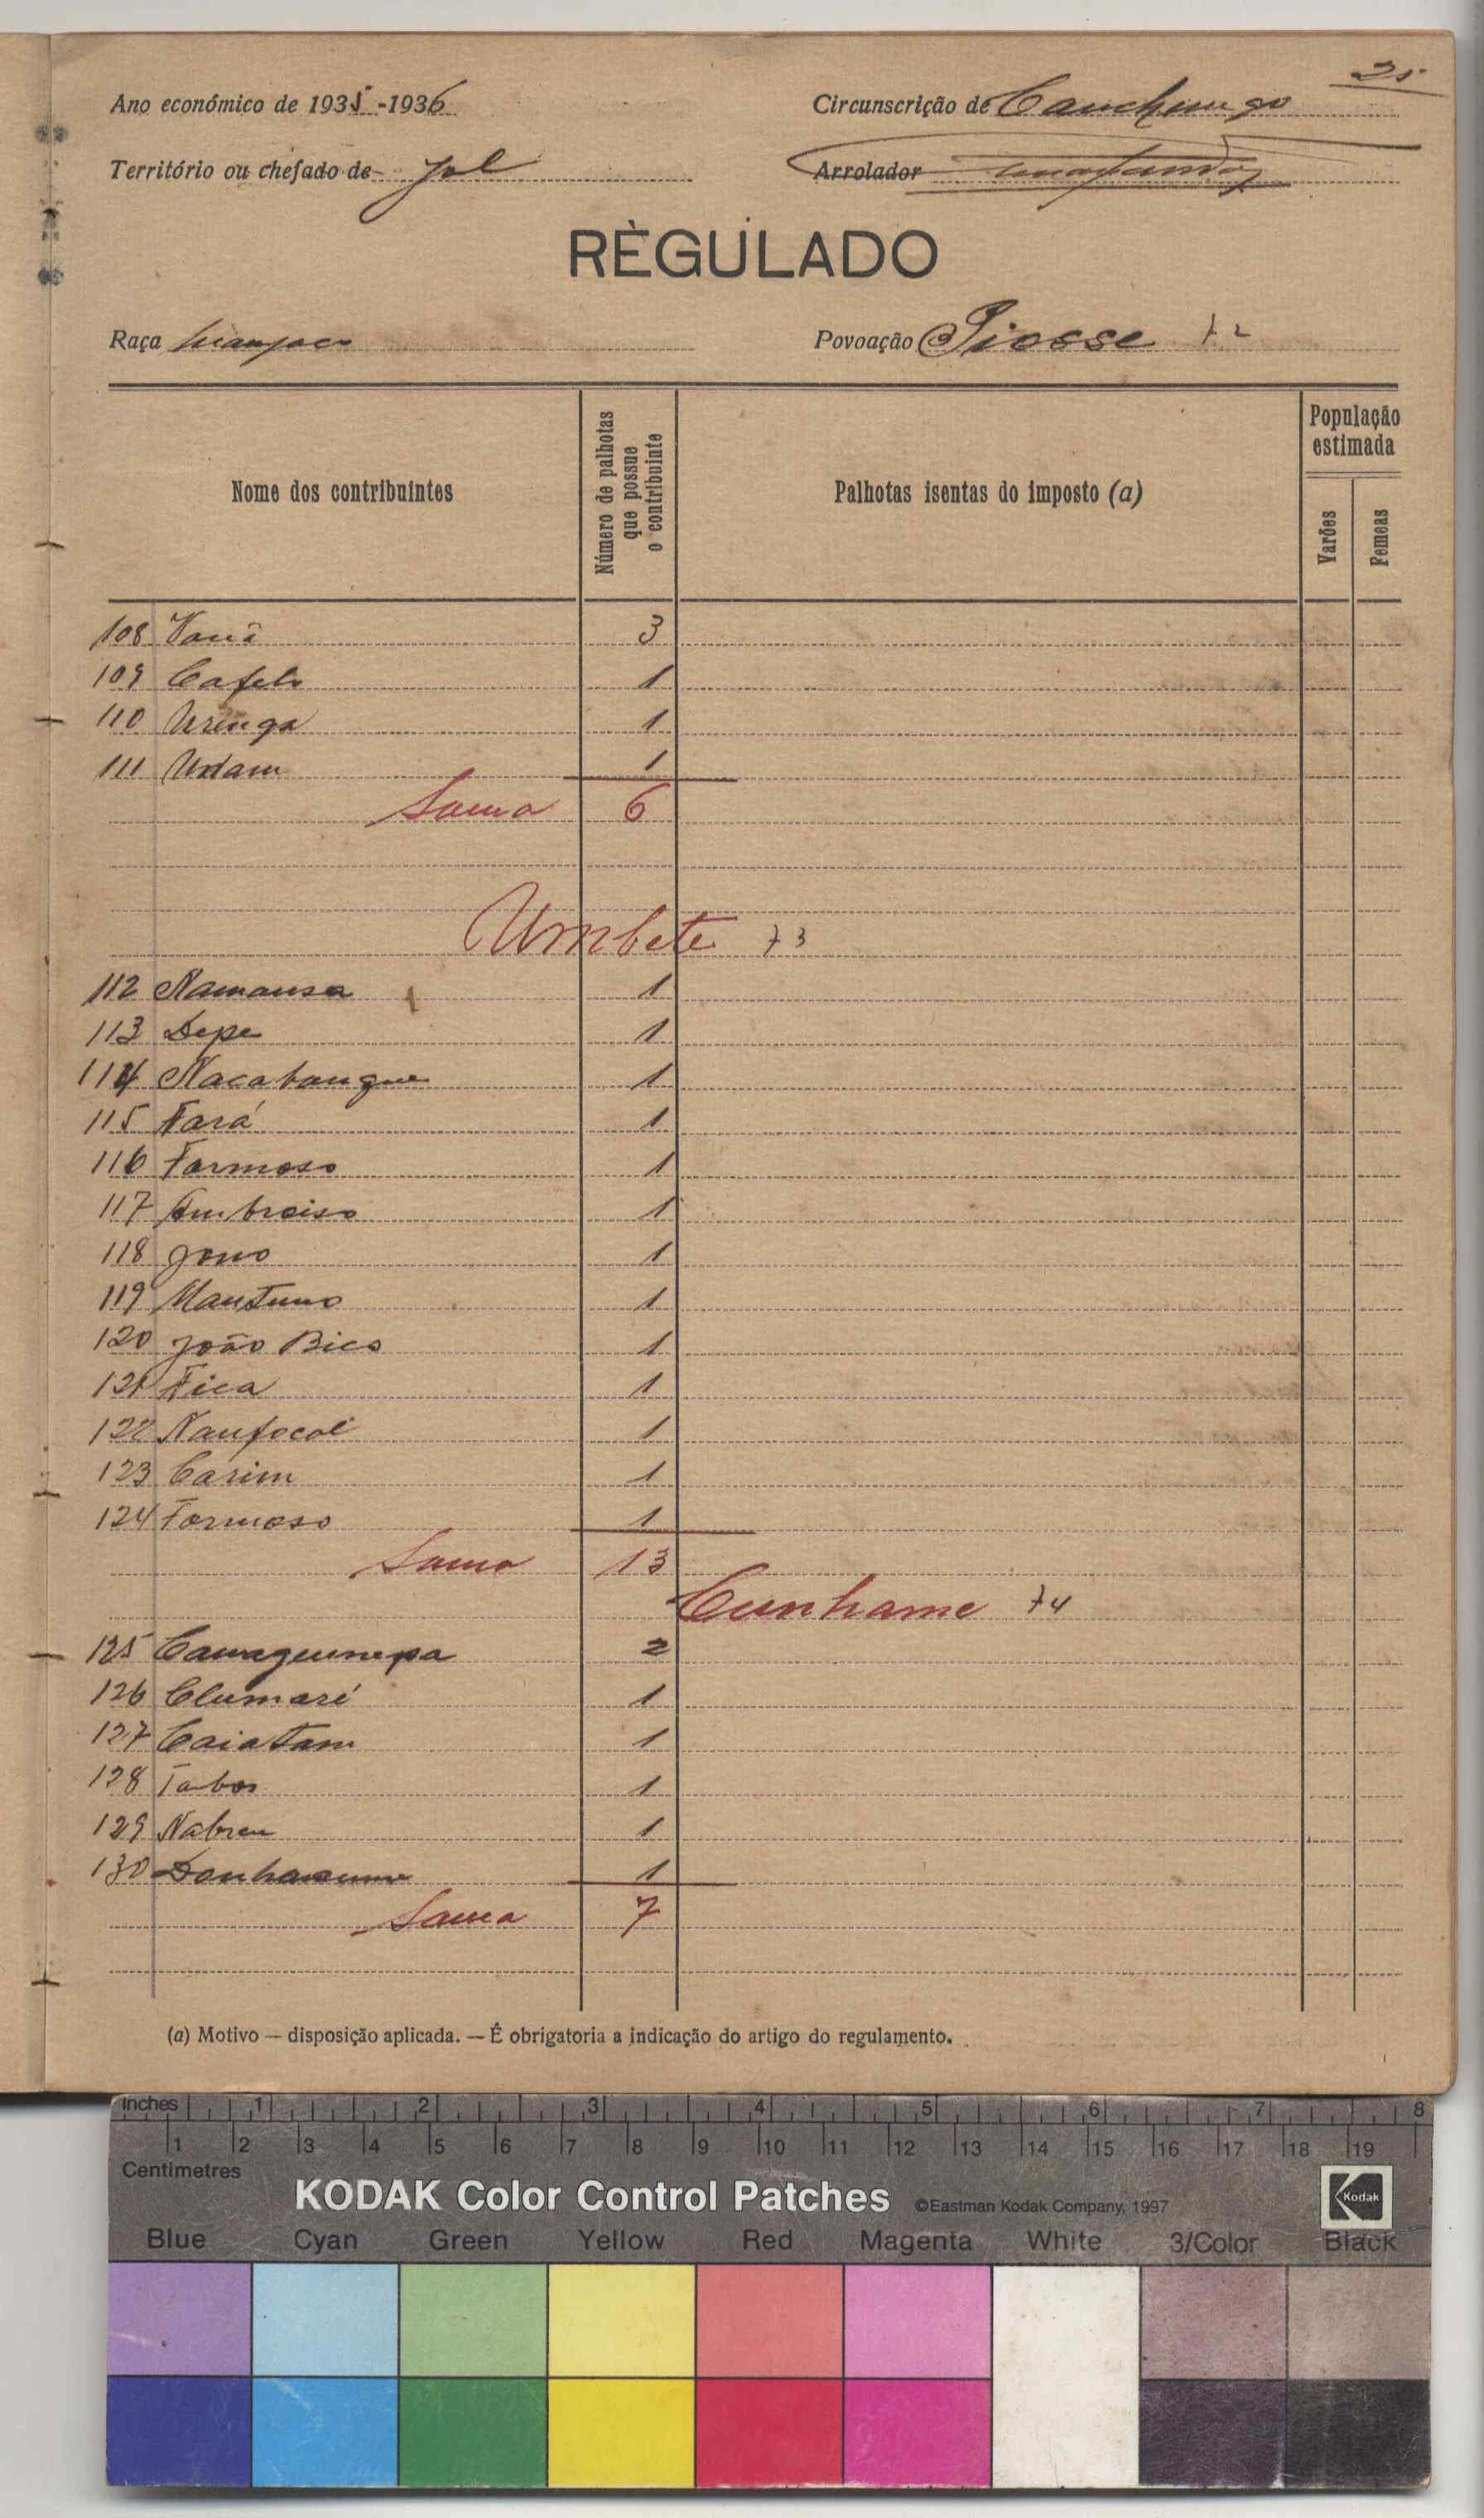 25
Ano económico de 1935-1936 Circunscrição de Canchungo
Território ou chefado de Jol Arrolador
RÈGULADO
Raça Manjaco Povoação Piosse 72
Nome dos contribuintes
Número de palhotas que possue o contribuinte
Palhotas isentas do imposto (a)
População estimada
Varões
Femeas
108 3
109 Cafelo 1
110 Uringa 1
111 Undam 1
Soma 6
Umbete 73
112 Namansa 1
113 Depe 1
114 Nacatangue 1
115 Nará 1
116 Formoso 1
117 Ambroiso 1
118 1
119 Mantuno 1
120 João Bico 1
121 Fica 1
122 Naufocal 1
123 Carim 1
124 Formoso 1
Soma 13
Cunhame 74
125 2
126 Clumaré 1
127 Caiatam 1
128 Tabor 1
129 Nabreu 1
130 1
Soma 7
(a) Motivo — disposição aplicada. — É obrigatoria a indicação do artigo do regulamento.
Inches 1 2 3 4 5 6 7 8
1 2 3 4 5 6 7 8 9 10 11 12 13 14 15 16 17 18 19
Centimetres
KODAK Color Control Patches ©Eastman Kodak Company, 1997 Kodak
Blue Cyan Green Yellow Red Magenta White 3/Color Black